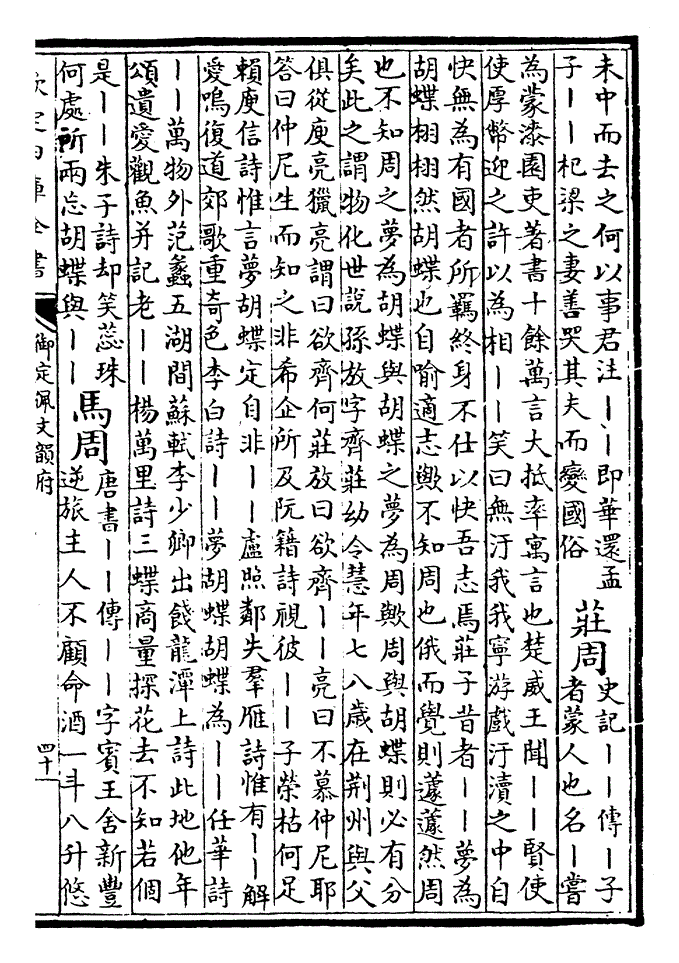 未中而去之何以事君注丨丨即華還孟
子丨丨杞梁之妻善哭其夫而變國俗
莊周
史記丨丨傳丨子
者蒙人也名丨嘗
為蒙漆園吏著書十餘萬言大抵率寓言也楚威王聞丨丨賢使
使厚幣迎之許以為相丨丨笑曰無汙我我寧游戲汙瀆之中自
快無為有國者所羈終身不仕以快吾志焉莊子昔者丨丨夢為
胡蝶栩栩然胡蝶也自喻適志歟不知周也俄而覺則蘧蘧然周
也不知周之夢為胡蝶與胡蝶之夢為周歟周與胡蝶則必有分
矣此之謂物化世說孫放字齊莊幼令慧年七八歲在荆州與父
俱從庾亮獵亮謂曰欲齊何莊放曰欲齊丨丨亮曰不慕仲尼耶
答曰仲尼生而知之非希企所及阮籍詩視彼丨丨子榮枯何足
賴庾信詩惟言夢胡蝶定自非丨丨盧照鄰失羣雁詩惟有丨丨解
愛鳴復道郊歌重奇色李白詩丨丨夢胡蝶胡蝶為丨丨任華詩
丨丨萬物外范蠡五湖間蘇軾李少卿出餞龍潭上詩此地他年
頌遺愛觀魚并記老丨丨楊萬里詩三蝶商量探花去不知若個
是丨丨朱子詩却笑蕊珠
何處所兩忘胡蝶與丨丨
馬周
唐書丨丨傳丨丨字賓王舍新豐
逆旅主人不顧命酒一斗八升悠
欽定四庫全書
御定佩文韻府
四十